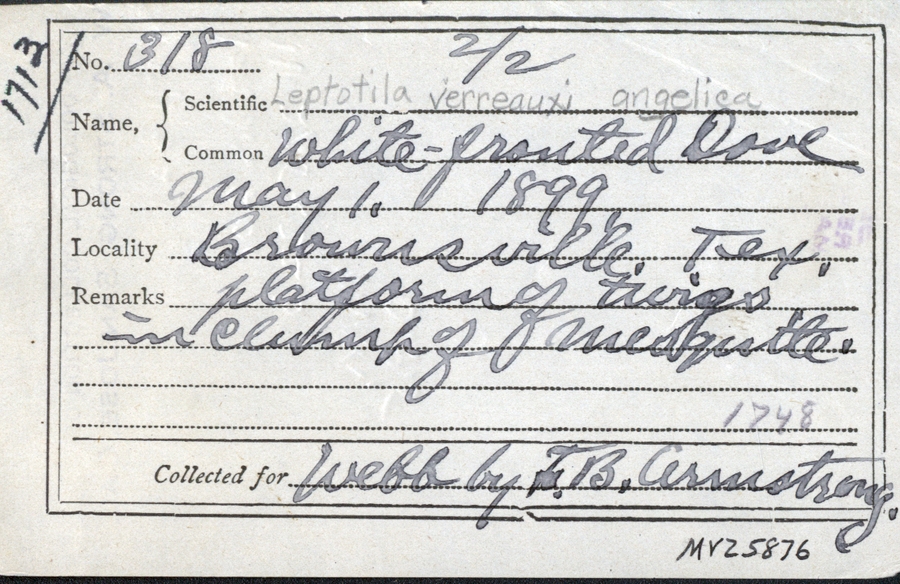 1713
No. 318 2/2
Name, { Scientific Leptotila verreauxi angelica
Common White-fronted Dove
Date May 1, 1899.
Locality Brownsville, Tex.
Remarks platform of twigs
in clump of Mesquitte.
1748
Collected for Webb by F. B. Armstrong.
MVZ5876